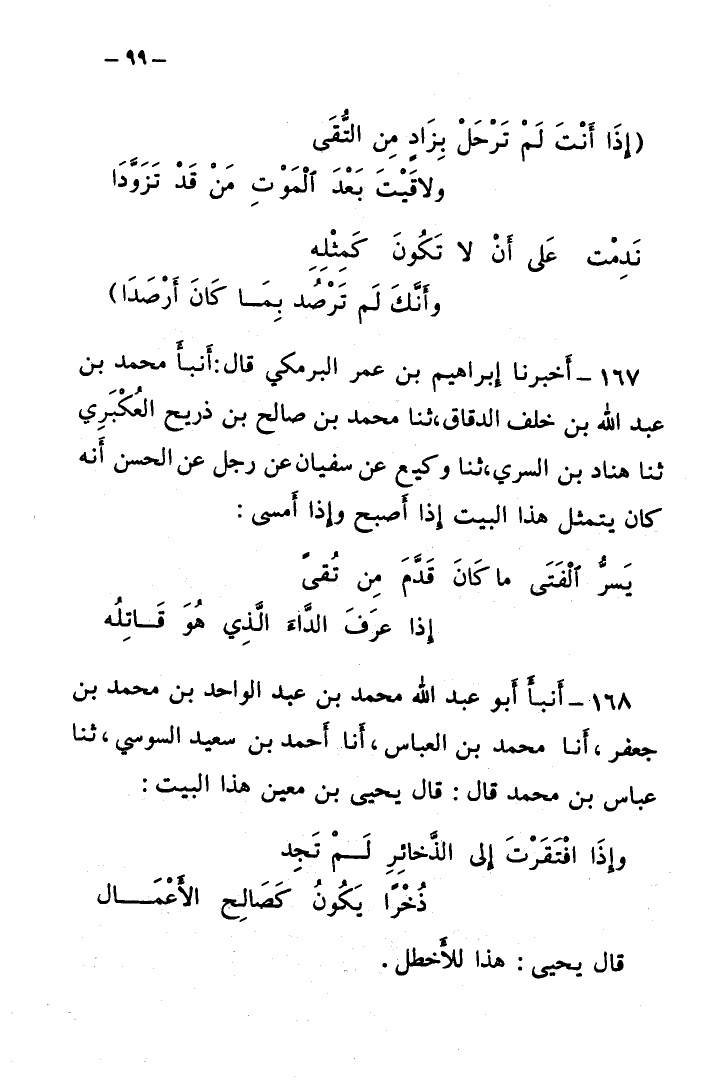 – ٩٩ –
(إِذَا أَنْتَ لَمْ تَرْحَلْ بِزَادٍ مِن التُّقَى
ولاقَيْتَ بَعْدَ ٱلْمَوْتِ مَنْ قَدْ تَزَوَّدَا
نَدِمْت عَلى أَنْ لا تَكُونَ كَمِثْلِهِ
وأَنَّكَ لَم تَرْصُد بِمَـا كَانَ أَرْصَدَا)
١٦٧ – أخبرنا إبراهيم بن عمر البرمكي قال: أنبأ محمد بن
عبد الله بن خلف الدقاق، ثنا محمد بن صالح بن ذريح العُكْبَرِي
ثنا هناد بن السري، ثنا وكيع عن سفيان عن رجل عن الحسن أنه
كان يتمثل هذا البيت إذا أصبح وإذا أمسى :
يَسرُّ ٱلْفَتَى ما كَانَ قَدَّمَ مِن تُقىً
إذا عرَفَ الدَّاءَ الَّذِي هُوَ قَـاتِلُه
١٦٨ – أنبأ أبو عبد الله محمد بن عبد الواحد بن محمد بن
جعفر ، أنـا محمد بن العباس ، أنا أحمد بن سعيد السوسي ، ثنا
عباس بن محمد قال : قال يحيى بن معين هذا البيت :
وإِذَا افْتَقَرْتَ إلى الذَّخائِرِ لَـمْ تَجِد
ذُخْرًا يَكُونُ كَصَالِح الأَعْمَـال
قال يحيى : هذا للأخطل .